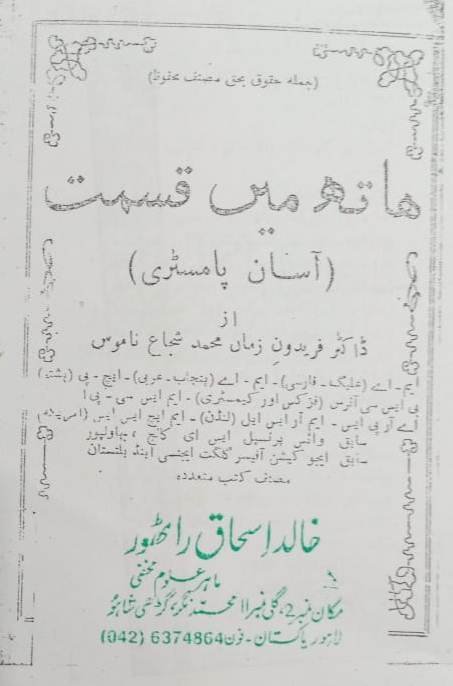 (جملہ حقوق بحق مصنف محفوظ)
ہاتھ میں قسمت
(آسان پامسٹری)
از
ڈاکٹر فریدونِ زماں محمد شجاع ناموس
ایم - اے (علیگ - فارسی) - ایم - اے (پنجاب - عربی) - ایچ - پی (پشتو)
بی ایس سی آنرس (فزکس اور کیمسٹری) - ایم ایس سی - پی ا
اے آر پی ایس - ایم آر ایس ایل (لنڈن) - ایم ایچ ایس ایس (امریکہ)
سابق وائس پرنسپل ایس ای کالج ، بہاولپور
سابق ایجوکیشن آفیسر گلگت ایجنسی اینڈ بلتستان
مصنف کتب متعددہ
خالد اسحاق راٹھور
ماہر علوم مخفی
مکان نمبر 2، گلی نمبر 11 محمد نگر، گڑھی شاہو
لاہور پاکستان - فون 6374864 (042)